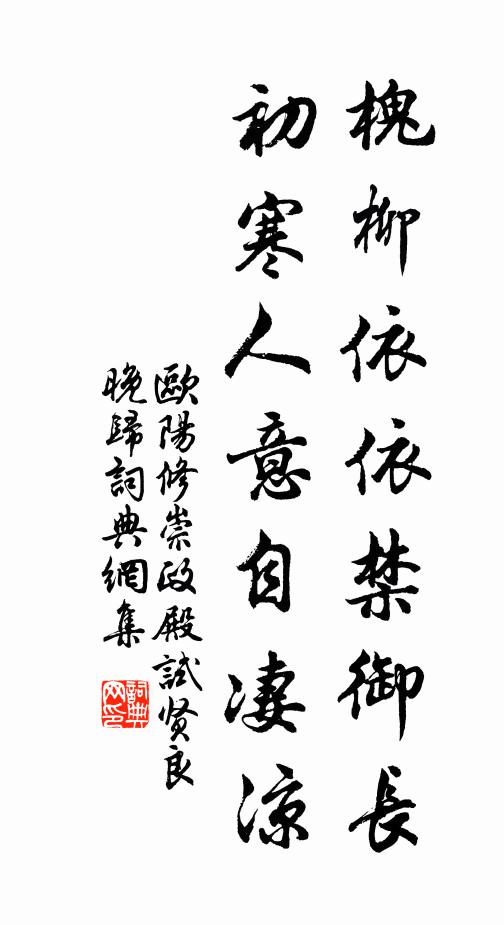 槐柳依依禁御長
初寒人意自凄涼
歐陽修崇政殿試贤良
晚歸詞典網集
詞典
网印